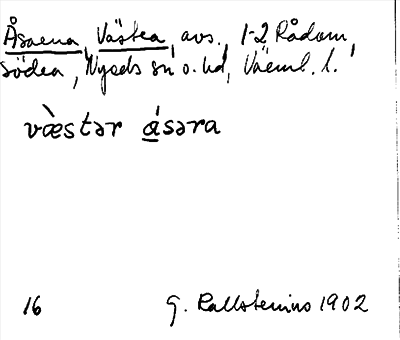 Åsarna, Västra, avs., 1-2 Rådom,
södra, Nyeds sn o. hd, Värml. l.
væ̀stər ásəra
16 G. Kallstenius 1902